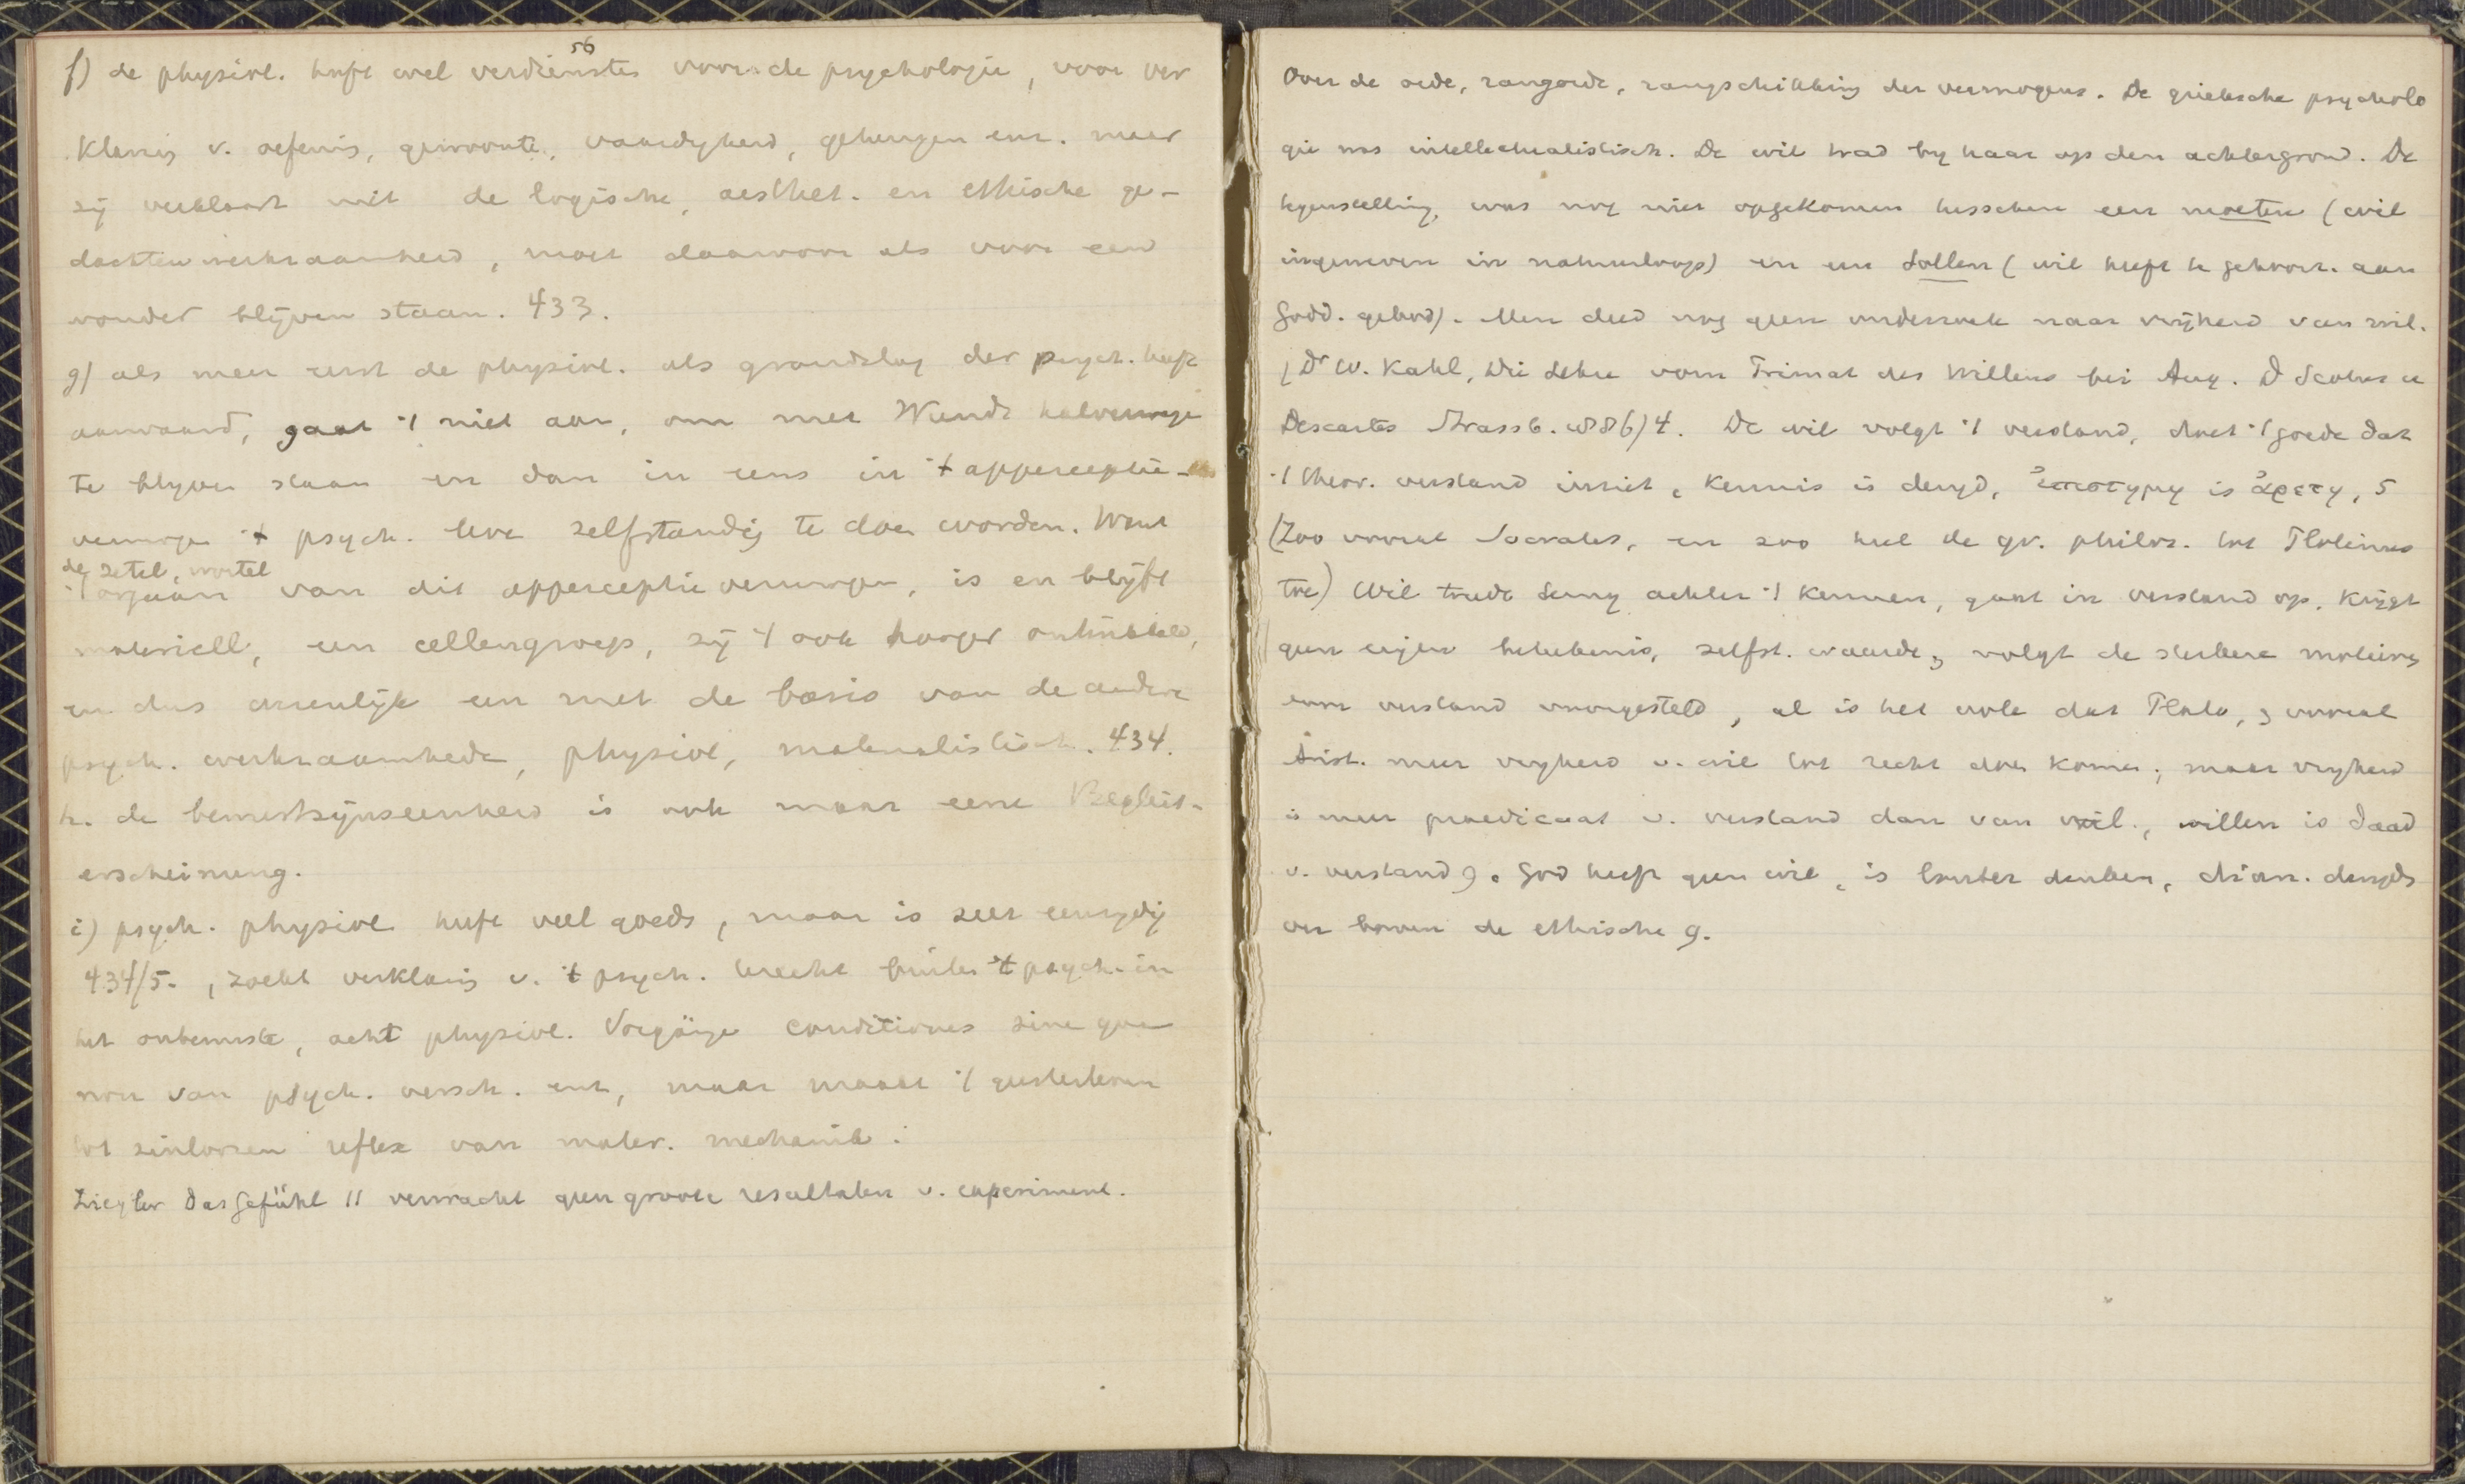 56
f) de physiol. heeft wel verdiensten voor de psychologie, voor ver
klaring v. oefenis, gewoonte, vaardigheid, geheugen enz. maar
zij verklaart niet de logische, aesthet. en ethische ge-
dachtenwerkzaamheid, moet daarvoor als voor een
wonder blijven staan. 433.
g) als men eerst de physiol. als grondslag der psych. heeft
aanvaard, gaat 't niet aan, om met Wundt halverwege
te blijven staan en dan in eens in 't apperceptie-
vermogen 't psych. leven zelfstandig te doen worden. Want
de zetel, wortel
't orgaan van dit apperceptievermogen, is en blijft
materiell, een cellengroep, zij 't ook hooger ontwikkeld,
en dus wezenlijk een met de basis van de andere
psych. werkzaamheden, physiol, materialistisch. 434.
h. de bewustzijnseenheid is ook maar eene Begleit-
erscheinung.
i) psych. physiol heeft veel goeds, maar is zeer eenzydig
434/5. , zoekt verklaring v. 't psych. terecht buiten 't psych. in
het onbewuste, acht physiol. Vorgänge conditiones sine qua
non van psych. versch. enz, maar maakt 't geestesleven
tot zinloozen reflex van mater. mechanik.
Ziegler Das Gefühl 11 verwacht geen groote resultaten v. experiment.
Over de orde, rangorde, rangschikking der vermogens. De grieksche psycholo
gie was intellectualistisch. De wil trad by haar op den achtergrond. De
tegenstelling was nog niet opgekomen tusschen een moeten (wil
ingeweven in natuurloop) en een sollen (wil heeft te gehoorz. aan
Godd. gebod). Men deed nog geen onderzoek naar vrijheid van wil.
(Dr W. Kahl, Die Lehre vom Primat des Willens bei Aug. D Scotus u
Descartes Strassb. 1886) 4. De wil volgt 't verstand, doet 't goede dat
't theor. verstand inziet, kennis is deugd, ἐπιστημη is ἀρετη, 5
(Zoo vooral Socrates, en zoo heel de gr. philos. tot Plotinus
toe) Wil treedt terug achter 't kennen, gaat in verstand op, krijgt
geen eigen beteekenis, zelfst. waarde, volgt de sterkere motieven
door verstand voorgesteld, al is het ook dat Plato, & vooral
Arist. meer vryheid v. wil tot recht doen komen; maar vryheid
is meer praedicaat v. verstand dan van wil., willen is daad
v. verstand 9. God heeft geen wil, is louter denken, dian. deugden
ver boven de ethische 9.